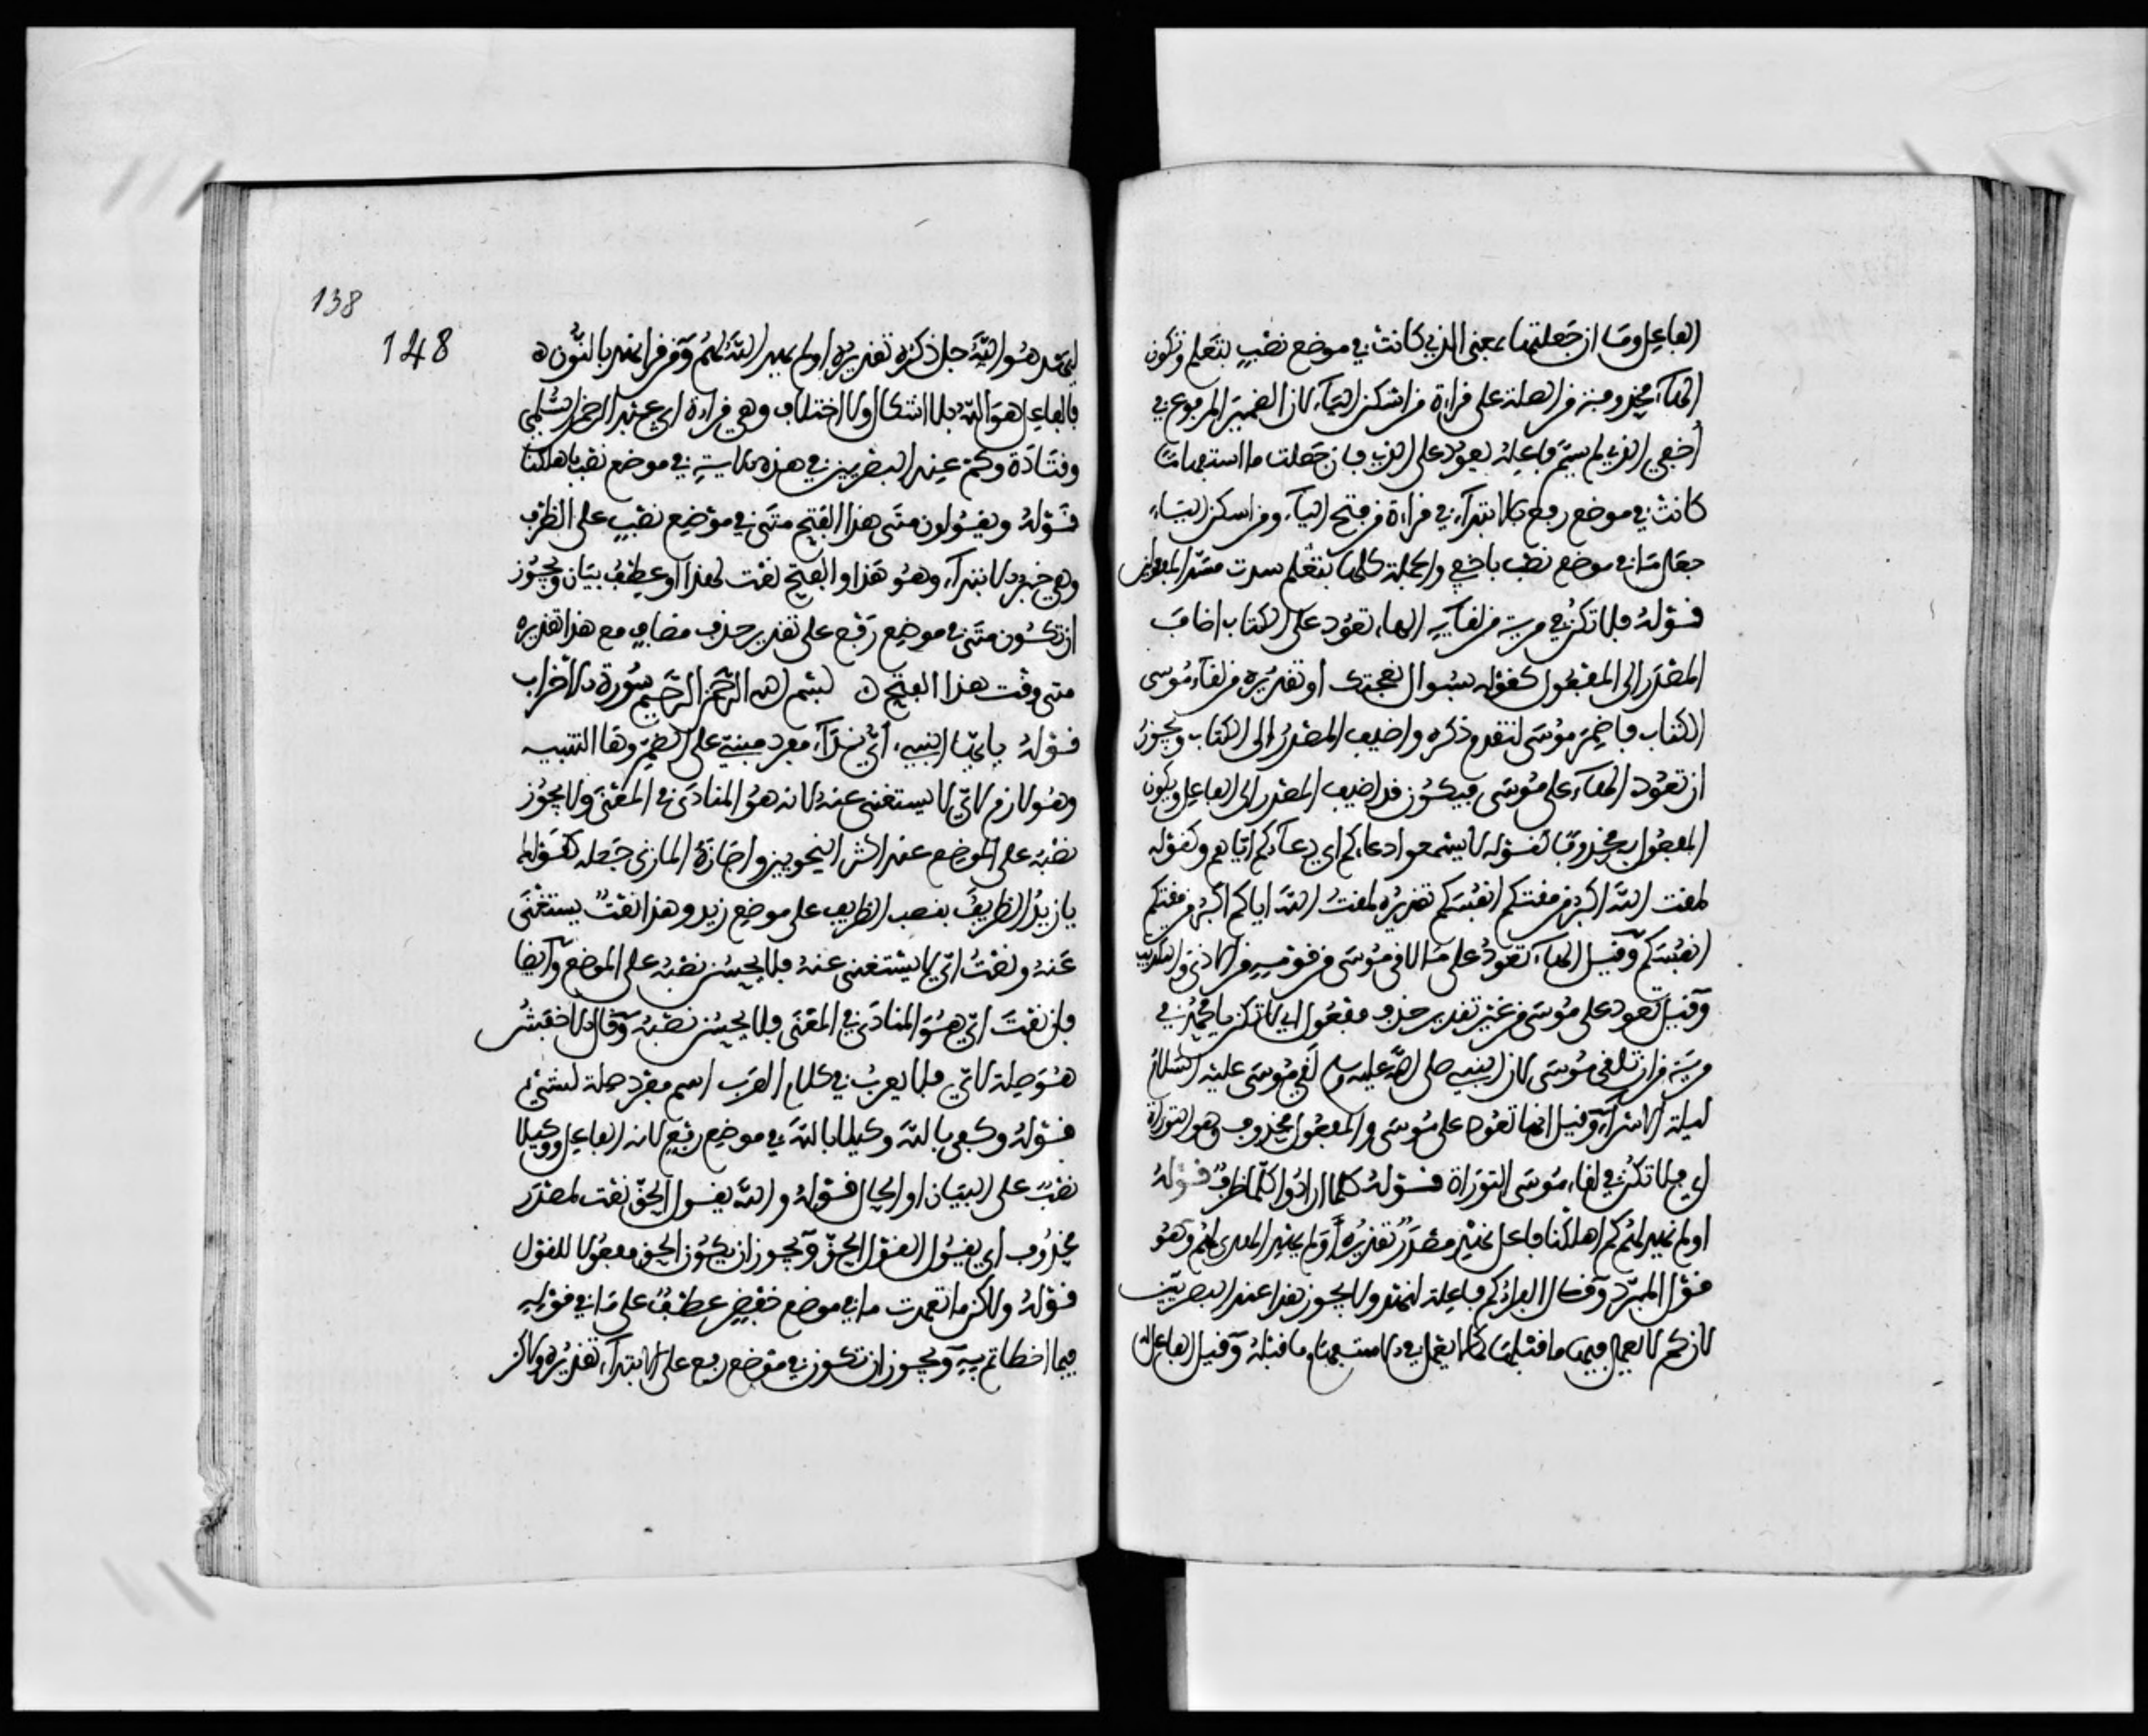 الفاعل وما ان جعلتها بمعنى الذي كانت في موضع نصب بتعلم وتكون
الهاء محذوفة من الصلة على قراءة من اسكن الياء لان الضمير المرفوع في
أخفي الذي لم يسم فاعله يعود على الذي فان جعلت ما استفهاما
كانت في موضع رفع بالابتداء في قراءة من فتح الياء ومن اسكن الياء
جعل ما في موضع نصب باخفي والجملة كلها بتعلم سدت مسد المفعولين
قوله فلا تكن في مرية من لقائه الهاء تعود على الكتاب اضاف
المصدر الى المفعول كقوله بسوال نعجتك أو تقديره من لقاء موسى
الكتاب فاضمر موسى لتقدم ذكره واضيف المصدر الى الكتاب ويجوز
ان تعود الهاء على موسى فيكون قد اضيف المصدر الى الفاعل ويكون
المفعول به محذوفا كقوله لا يسمعوا دعاءكم اي دعاءكم اياهم وكقوله
لمقت الله اكبر من مقتكم انفسكم تقديره لمقت الله اياكم اكبر من مقتكم
انفسكم وقيل الهاء تعود على ما لاقى موسى من قومه من الاذى والتكذيب
وقيل تعود على موسى من غير تقدير حذف مفعول اي لا تكن يا محمد في
مرية من ان تلقى موسى لان النبي صلى الله عليه وسلم لقي موسى عليه السلام
ليلة الاسراء وقيل انها تعود على موسى والمفعول محذوف وهو التوراة
اي فلا تكن في لقاء موسى التوراة قوله كلما ارادوا كلما ظرف قوله
اولم نهد لهم كم اهلكنا فاعل نهد مصدر تقديره أولم نهد الهدى لهم وهو
قول المبرد وقال الفراء كم فاعلة لنهد ولا يجوز هذا عند البصريين
لان كم لا يعمل فيها ما قبلها كما لا يعمل في الاستفهام ما قبله وقيل الفاعل
138
148
ليهد هو الله جل ذكره تقديره اولم يهد الله لهم ومن قرا نهد بالنون
فالفاعل هو الله بلا اشكال ولا اختلاف وهي قراءة ابي عبد الرحمن السلمي
وقتادة وكم عند البصريين في هذه الاية في موضع نصب باهلكنا
قوله ويقولون متى هذا الفتح متى في موضع نصب على الظرف
وهي خبر الابتداء وهو هذا والفتح نعت لهذا أو عطف بيان ويجوز
ان تكون متى في موضع رفع على تقدير حذف مضاف مع هذا تقديره
متى وقت هذا الفتح بسم الله الرحمن الرحيم سورة الاحزاب
قوله يا أيها النبي أي نداء مفرد مبني على الضم وها للتنبيه
وهو لازم لاي لا يستغنى عنه لانه هو المنادى في المعنى ولا يجوز
نصبه على الموضع عند اكثر النحويين واجازه المازني جعله كقولك
يا زيد الظريف بنصب الظريف على موضع زيد وهذا نعت يستغنى
عنه ونعت اي لا يستغنى عنه فلا يحسن نصبه على الموضع وأيضا
فان نعت اي هو المنادى في المعنى فلا يحسن نصبه وقال الاخفش
هو صلة لاي فلا يعرف في كلام العرب اسم مفرد صلة لشيء
قوله وكفى بالله وكيلا بالله في موضع رفع لانه الفاعل ووكيلا
نصب على البيان او الحال قوله والله يقول الحق نعت لمصدر
محذوف أي يقول القول الحق ويجوز ان يكون الحق مفعولا للقول
قوله ولاكن ما تعمدت ما في موضع خفض عطف على ما في قوله
فيما اخطاتم به ويجوز ان تكون في موضع رفع على الابتداء تقديره ولاكن